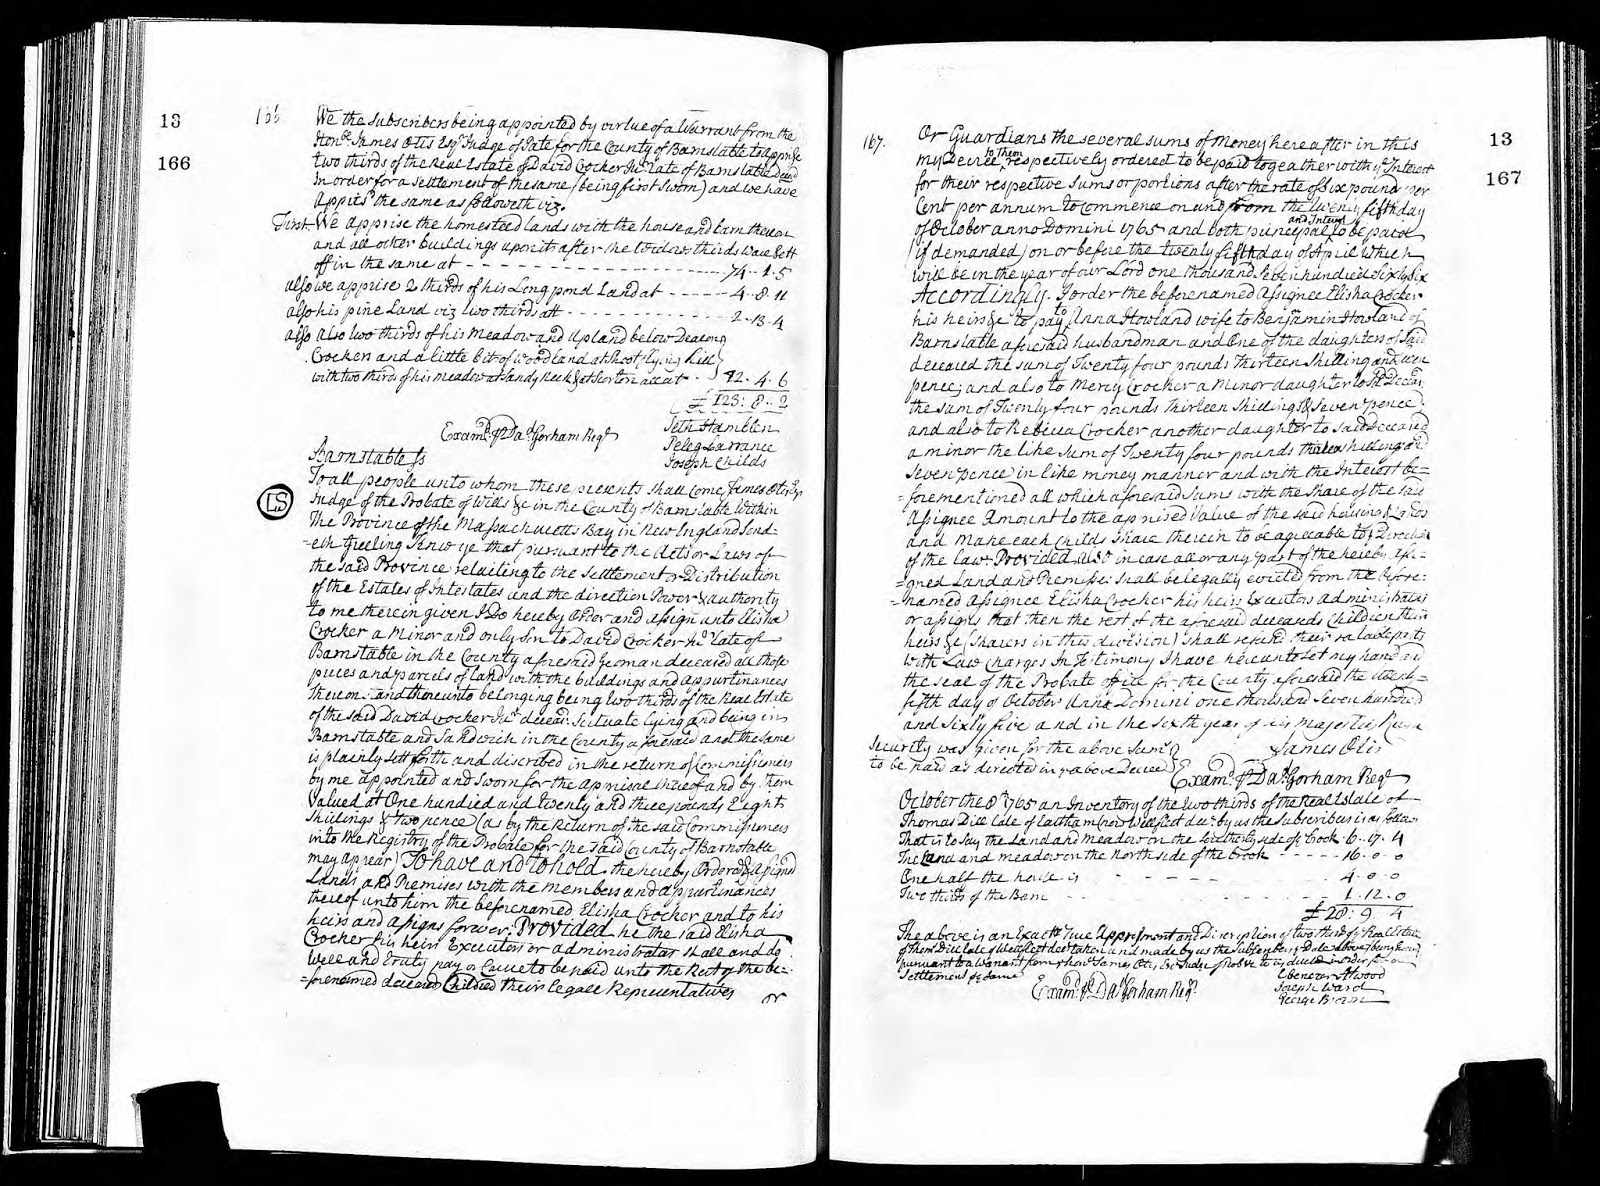 13
166
166
We the Subscribers being appointed by virtue of a Warrant from the
Honble James Otis Esqr Judge of Pate for the County of Barnstable to apprise
two thirds of the Real Estate of David Crocker Junr late of Barnstable Decd
In order for a Settlement of the same (being first Sworn) and we have
Appris'd the same as followeth viz.
First We apprise the homested lands with the house and barn thereon
and all other buildings upon it after the widows thirds ware Sett
off in the same at 74 .. 1 .. 5
also we apprise 2 thirds of his Long pond Land at 4 .. 8 .. 11
also his pine Land viz two thirds att 2 .. 13 .. 4
also Also two thirds of his Meadow and upland below Deacon
Crocker and a little bit of woodland at
with two thirds of his meadow at Sandy Neck & at Scorton all at 42 .. 4 .. 6
£ 123 : 8 .. 2
Seth Hamblen
Examd pr Dad Gorham Regr
Peleg Larrance
Joseph Childs
Barnstable Ss
LS
To all people unto whom these presents shall come, James Otis Esqr
Judge of the Probate of Wills &c in the County of Barnstable Within
The Province of the Massachucetts Bay in New England Send=
=eth Greeting Know ye that pursuant to the Acts or Laws of
the said Province relateing to the Settlement or Distribution
of the Estates of Intestates and the direction Power & authority
to me therein given I Do hereby order and assign unto Elisha
Crocker a Minor and only Son to David Crocker Junr late of
Barnstable in the County aforesaid yeoman deceased all those
pieces and parcels of land with the buildings and appurtinances
thereon and thereunto belonging being two thirds of the Real Estate
of the said David Crocker Junr deceasd Scituate lying and being in
Barnstable and Sandwich in the County aforesaid and the same
is plainly Sett forth and discribed in the return of Commissioners
by me appointed and Sworn for the apprisal thereof and by them
Valued at One hundred and twenty and three pounds Eight
Shillings & two pence (as by the Return of the said Commissioners
into the Registry of the Probate for the said County of Barnstable
may appear) To have and to hold the hereby Ordered & Assign'd
Lands and Premises with the members and appurtinances
thereof unto him the beforenamed Elisha Crocker and to his
heirs and assigns forever: Provided he the said Elisha
Crocker his heirs Executors or administrators shall and do
Well and truly pay or Cause to be paid unto the Rest of the be=
=forenamed deceased Children their legall Representatives
or
13
167
167.
Or Guardians the several sums of Money hereafter in this
my Decree to Them respectively ordered to be paid togeather with ye Interest
for their respective Sums or portions after the rate of six pounds per
Cent per annum to commence on and from the twenty fifth day
of October anno Domini 1765 and both principal and Interest to be paid
(if demanded) on or before the twenty fifth day of April Which
will be in the year of our Lord one thousand Seven hundred Sixty Six
Accordingly I order the beforenamed Assignee Elisha Crocker
his heirs &c to pay to Anna Howland wife to Benjamin Howland of
Barnstable aforesaid husbandman and One of the daughters of Said
deceased the sum of Twenty four pounds Thirteen Shilling and seven
pence; and also to Mercy Crocker a Minor daughter to sd Deceasd
the sum of Twenty four pounds Thirteen Shillings & Seven pence:
and also to Rebecca Crocker another daughter to said Deceased
a minor the like Sum of Twenty four pounds thirteen shillings and
Seven pence in like money manner and with the Interest be=
=forementioned all which aforesaid Sums with the Share of the said
Assignee Amount to the apprised Value of the said housing & Lands
and make each Childs Share therein to be agreeable to ye Direction
of the Law: Provided also in case all or any part of the hereby assi=
=gned Land and Premises shall be legally evicted from the before=
=named Assignee Elisha Crocker his heirs Executors Administrators
or assigns that then the rest of the aforesaid deceaseds Children their
heirs &c (Sharers in this division) shall refund their ratable parts
With Law Charges In Testimony I have hereunto Set my hand and
the seal of the Probate office for the County aforesaid the twenty=
fifth day of October Anno Domini one thousand Seven hundred
and Sixty five and in the sixth year of his majesties Reign
Security was given for the above Sums
James Otis
to be paid as directed in ye above Decree
Examd pr Dad Gorham Regr
October the 8th 1765 an Inventory of the two thirds of the Real Estate of
Thomas Dill late of Eastham (now Wellfleet decd by us the Subscribers is as follows
That is to say the Land and Meadow on the Southerly side of ye Crook 6 .. 17 .. 4
The Land and meadow on the North side of the Crook 16 .. 0 .. 0
One half the house is 4 .. 0 .. 0
Two thirds of the Barn 1 .. 12 .. 0
£ 28 : 9 .. 4
The above is an Exact & True Apprisment and Discription of two third of ye Real Estate
of Thos Dill late of Wellfleet deceas taken and made by us the Subscribers ye Date above being
pursuant to a Warrant from ye honr James Otis Esqr Judge of Probate to us in order for a
Settlement of ye same
Ebenezer Atwood
Examd pr Dad Gorham Regr
Joseph Ward
George Brown